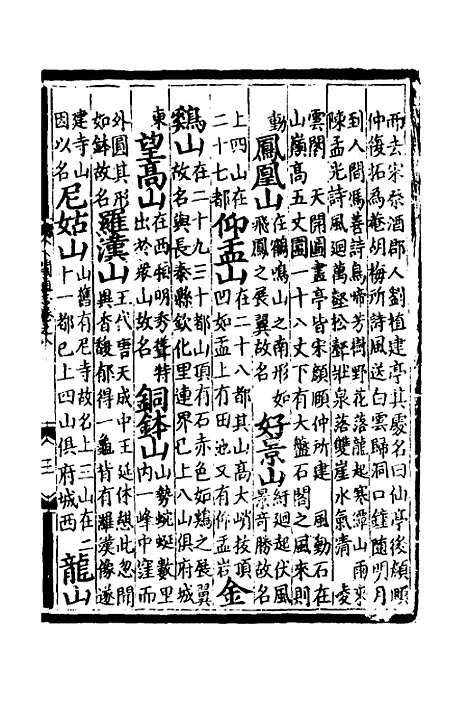 而去宋祭酒郡人劉植建亭其處名曰仙亭後顔頤
仲復拓為菴胡梅所詩風送白雲歸洞口鐘隨明月
到人間馬善詩鳥啼芳樹野花落龍起寒潭山雨來
陳孟光詩風迴萬壑松聲狀泉落雙崖水氣清　凌
雲閣　天開圖畫亭皆宋顔頤仲所建　風動石在
山巔高五丈圍一十八丈下有大盤石閣之風來則
動　鳳凰山　在鶴鳴山之南形如飛鳳之展翼故名　好景山　紆迴起伏風景奇勝故名
上四山在二十七都　仰盂山　在二十八都其山高大峭拔頂凹如盂上有田池又有仰盂岩　金
雞山　在二十九三十都山頂有石赤色如鷄之展翼故名與長泰縣欽化里連界已上八山俱府城
東　望高山　在西頓明秀聳特出於衆山故名　銅鉢山　山勢蜿蜒數里内一峰中窪而
外圓其形如鉢故名　羅漢山　五代唐天成中王延休憩此忽聞異香馥郁得一龜背有羅漢像遂
建寺山因以名　尼姑山　山舊有尼寺故名上三山在二十一都已上四山俱府城西　龍山